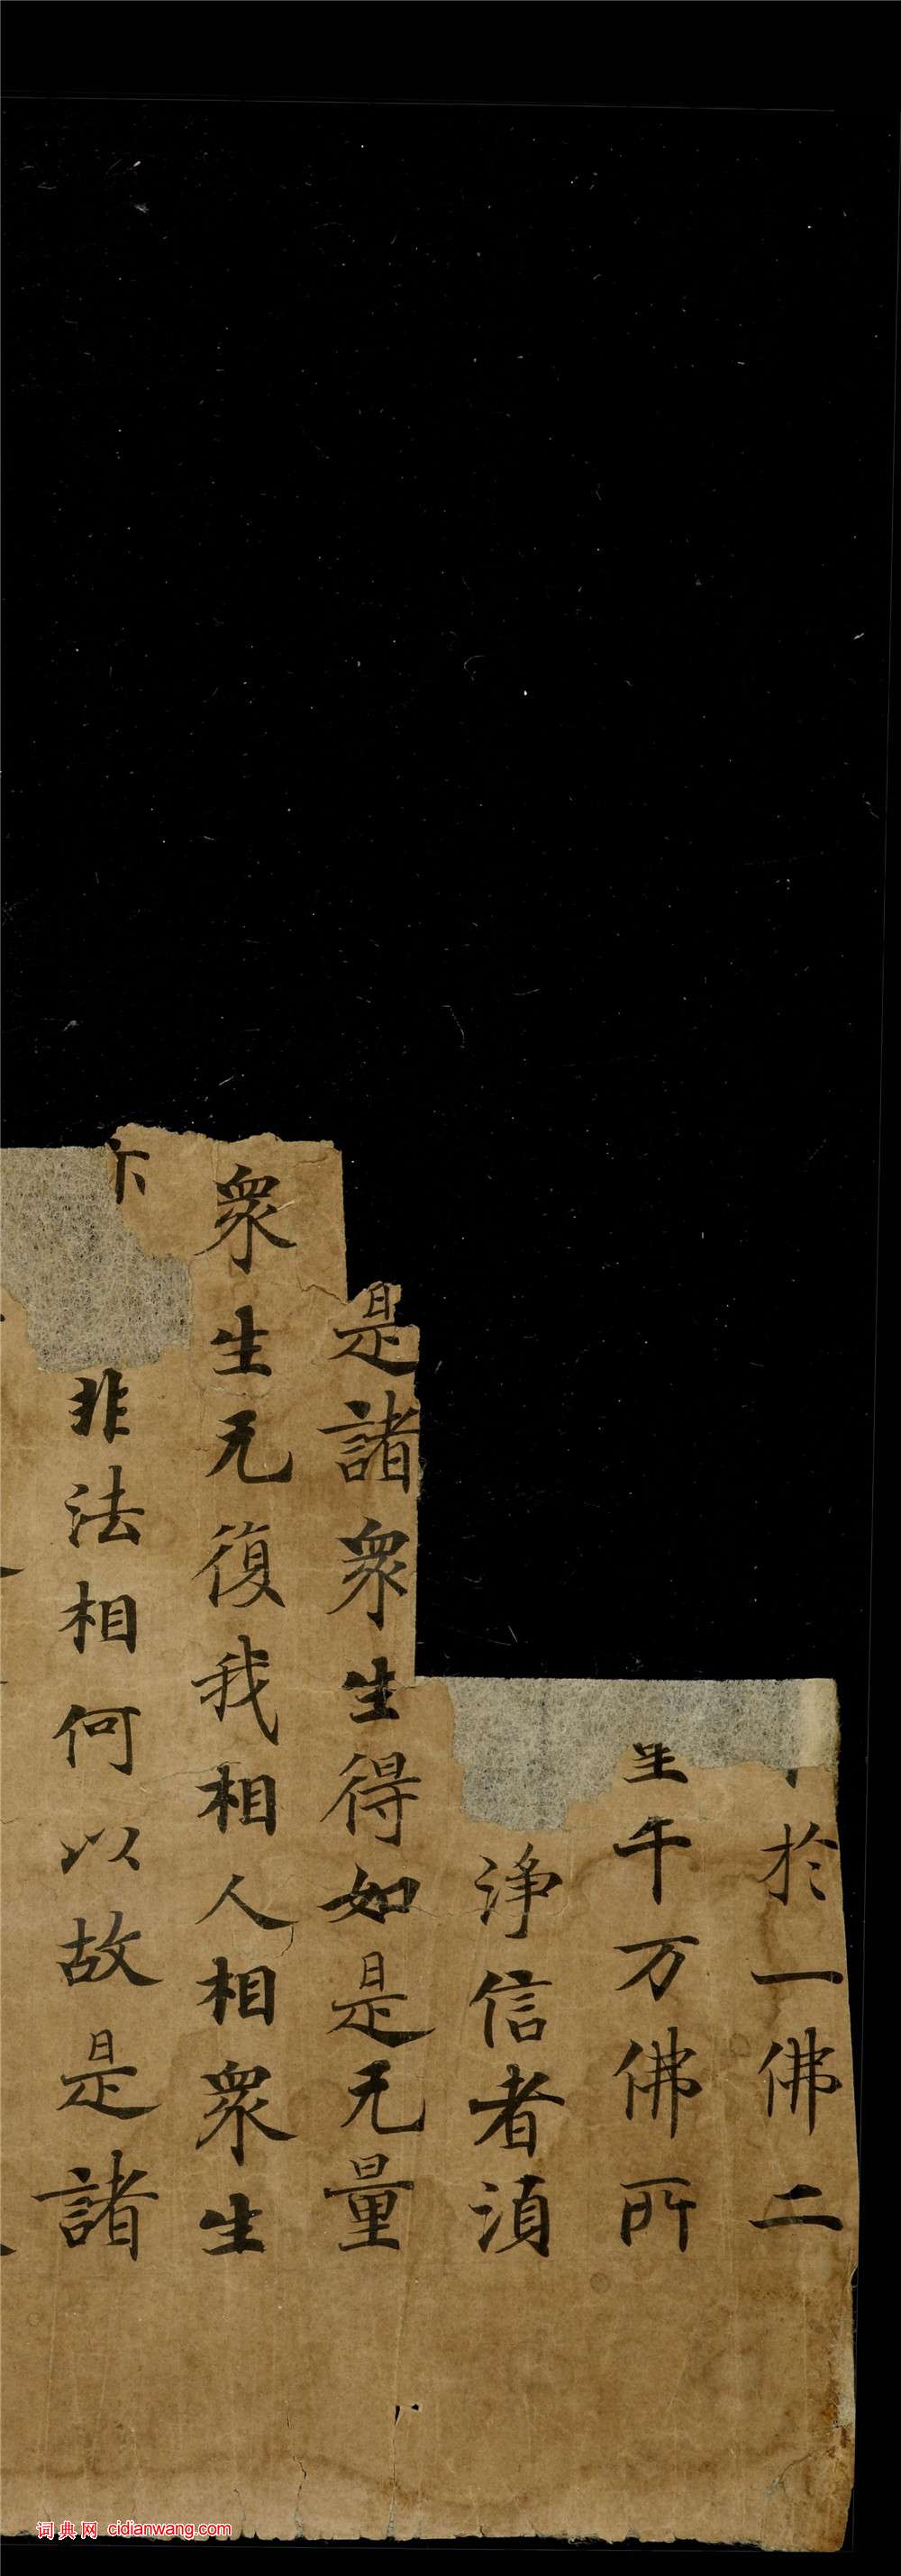 於一佛二
千万佛所
淨信者湏
是諸衆生得如是无量
衆生无復我相人相衆生
非法相何以故是諸
词典网 cidianwang.com